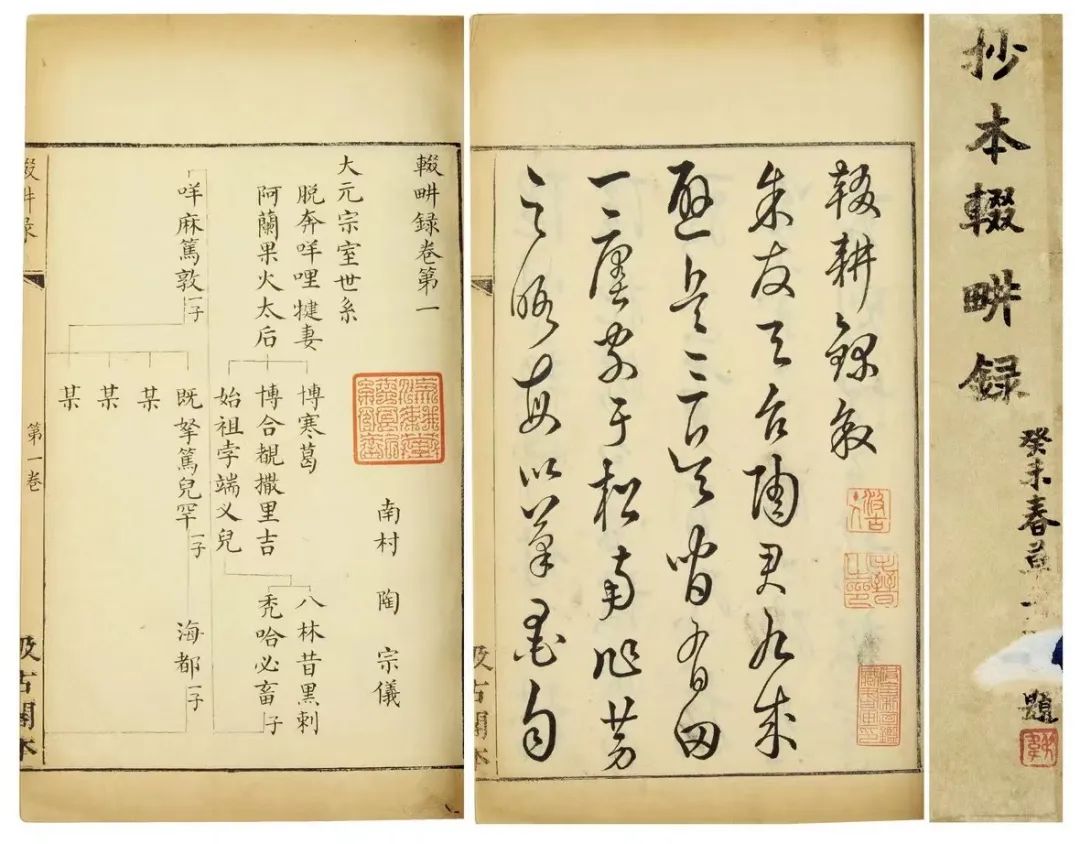 抄本輟畊録
癸未春
題
輟耕錄叙
余友天台陶君九成
避兵三吴間有田
一廛家于松南作勞
之暇每以筆墨自
輟畊録卷第一
南村 陶 宗儀
大元宗室世系
脱奔咩哩犍妻
阿蘭果火太后
博寒葛
博合覩撒里吉
始祖孛端义兒
八林昔黑剌
秃哈必畜 子
咩麻篤敦 一子
既拏篤兒罕 一子
海都 一子
某
某
某
第一卷
汲古閣本